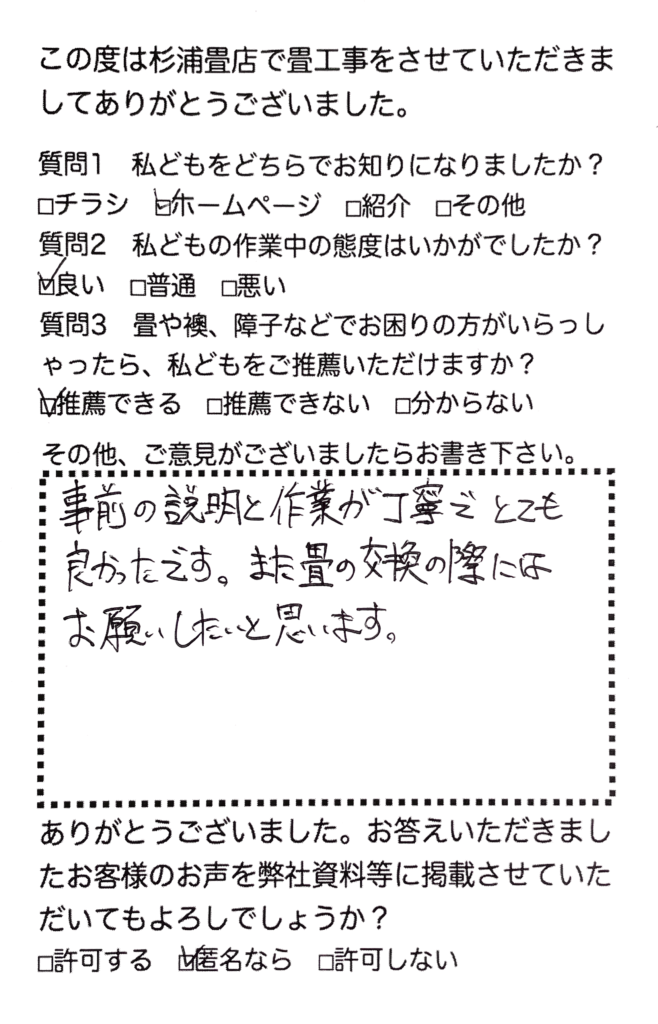 この度は杉浦畳店で畳工事をさせていただきま
してありがとうございました。
質問1 私どもをどちらでお知りになりましたか？
□チラシ ☑ホームページ □紹介 □その他
質問2 私どもの作業中の態度はいかがでしたか？
☑良い □普通 □悪い
質問3 畳や襖、障子などでお困りの方がいらっし
ゃったら、私どもをご推薦いただけますか？
☑推薦できる □推薦できない □分からない
その他、ご意見がございましたらお書き下さい。
事前の説明と作業が丁寧でとても
良かったです。また畳の交換の際には
お願いしたいと思います。
ありがとうございました。お答えいただきまし
たお客様のお声を弊社資料等に掲載させていた
だいてもよろしでしょうか？
□許可する ☑匿名なら □許可しない